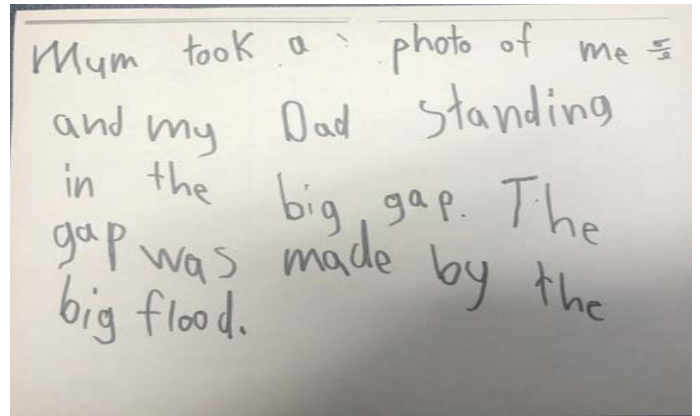 Mum took a photo of me
and my Dad standing
in the big gap. The
gap was made by the
big flood.